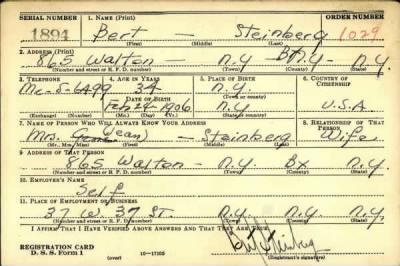 SERIAL NUMBER 1. NAME (Print) ORDER NUMBER
1894 Bert — Steinberg 1029
(First) (Middle) (Last)
2. ADDRESS (Print)
865 Walton — N.Y. Bx N.Y. — N.Y.
(Number and street or R. F. D. number) (Town) (County) (State)
3. TELEPHONE 4. AGE IN YEARS 5. PLACE OF BIRTH 6. COUNTRY OF CITIZENSHIP
Me-5-6499 34 N.Y.
DATE OF BIRTH (Town or county)
Feb 24 1906 N.Y. U.S.A
(Exchange) (Number) (Mo.) (Day) (Yr.) (State or country)
7. NAME OF PERSON WHO WILL ALWAYS KNOW YOUR ADDRESS 8. RELATIONSHIP OF THAT PERSON
Mrs. (Jean) — Steinberg Wife
(Mr., Mrs., Miss) (First) (Middle) (Last)
9. ADDRESS OF THAT PERSON
865 Walton — N.Y. Bx N.Y.
(Number and street or R. F. D. number) (Town) (County) (State)
10. EMPLOYER'S NAME
Self
11. PLACE OF EMPLOYMENT OR BUSINESS
37 W. 37 ST. N.Y. N.Y. N.Y.
(Number and street or R. F. D. number) (Town) (County) (State)
I AFFIRM THAT I HAVE VERIFIED ABOVE ANSWERS AND THAT THEY ARE TRUE.
REGISTRATION CARD
D. S. S. Form 1 (over) 16—17105 Bert Steinberg